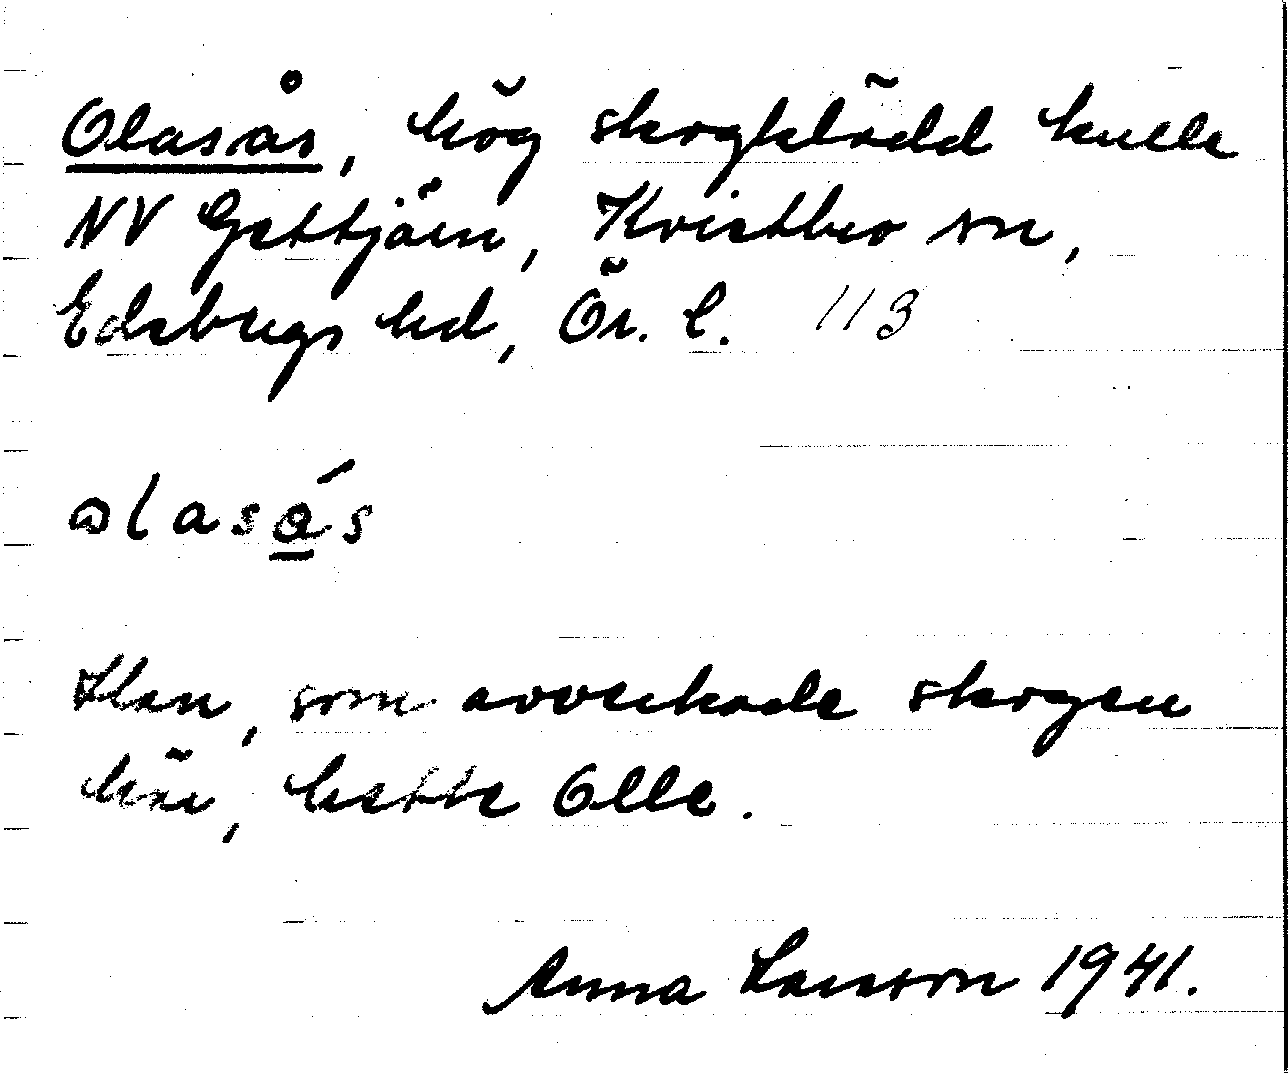 Olasås, hög skogklädd kulle
NV Gettjärn, Kvistbro sn,
Edsbergs hd, Ör. l. 113
ɷlasǻs
Han, som avverkade skogen
här, hette Olle.
Anna Larsson 1941.